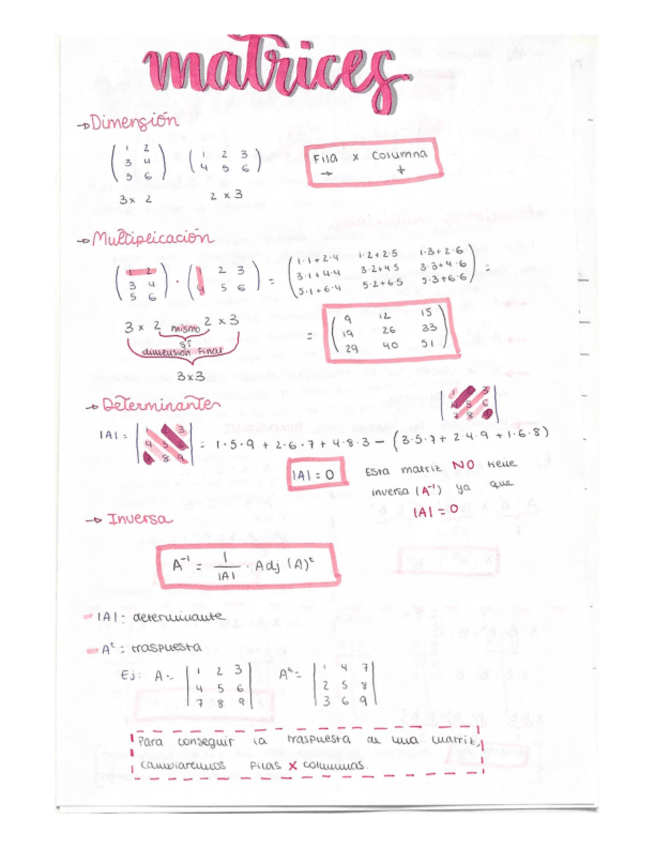 matrices
→Dimensión
( 1 2 ) ( 1 2 3 )
( 3 4 ) ( 4 5 6 )
( 5 6 )
Fila x Columna
→ ↓
3 x 2 2 x 3
→ Multiplicación
( 1 2 ) · ( 1 2 3 ) = ( 1·1+2·4 1·2+2·5 1·3+2·6 ) =
( 3 4 ) ( 4 5 6 ) ( 3·1+4·4 3·2+4·5 3·3+4·6 )
( 5 6 ) ( 5·1+6·4 5·2+6·5 5·3+6·6 )
3 x 2 mismo 2 x 3
dimensión final
3x3
= ( 9 12 15 )
( 19 26 33 )
( 29 40 51 )
→ Determinante
| 1 2 3 |
| 4 5 6 |
| 7 8 9 |
|A| = | 1 2 3 | = 1·5·9 + 2·6·7 + 4·8·3 - (3·5·7 + 2·4·9 + 1·6·8)
| 4 5 6 |
| 7 8 9 |
|A| = 0
Esta matriz NO tiene
inversa (A⁻¹) ya que
|A| = 0
→ Inversa
A⁻¹ = 1/|A| · Adj (A)ᵗ
|A|: determinante
Aᵗ: traspuesta
Ej: A= | 1 2 3 | Aᵗ= | 1 4 7 |
| 4 5 6 | | 2 5 8 |
| 7 8 9 | | 3 6 9 |
Para conseguir la traspuesta de una matriz,
cambiaremos filas x columnas.